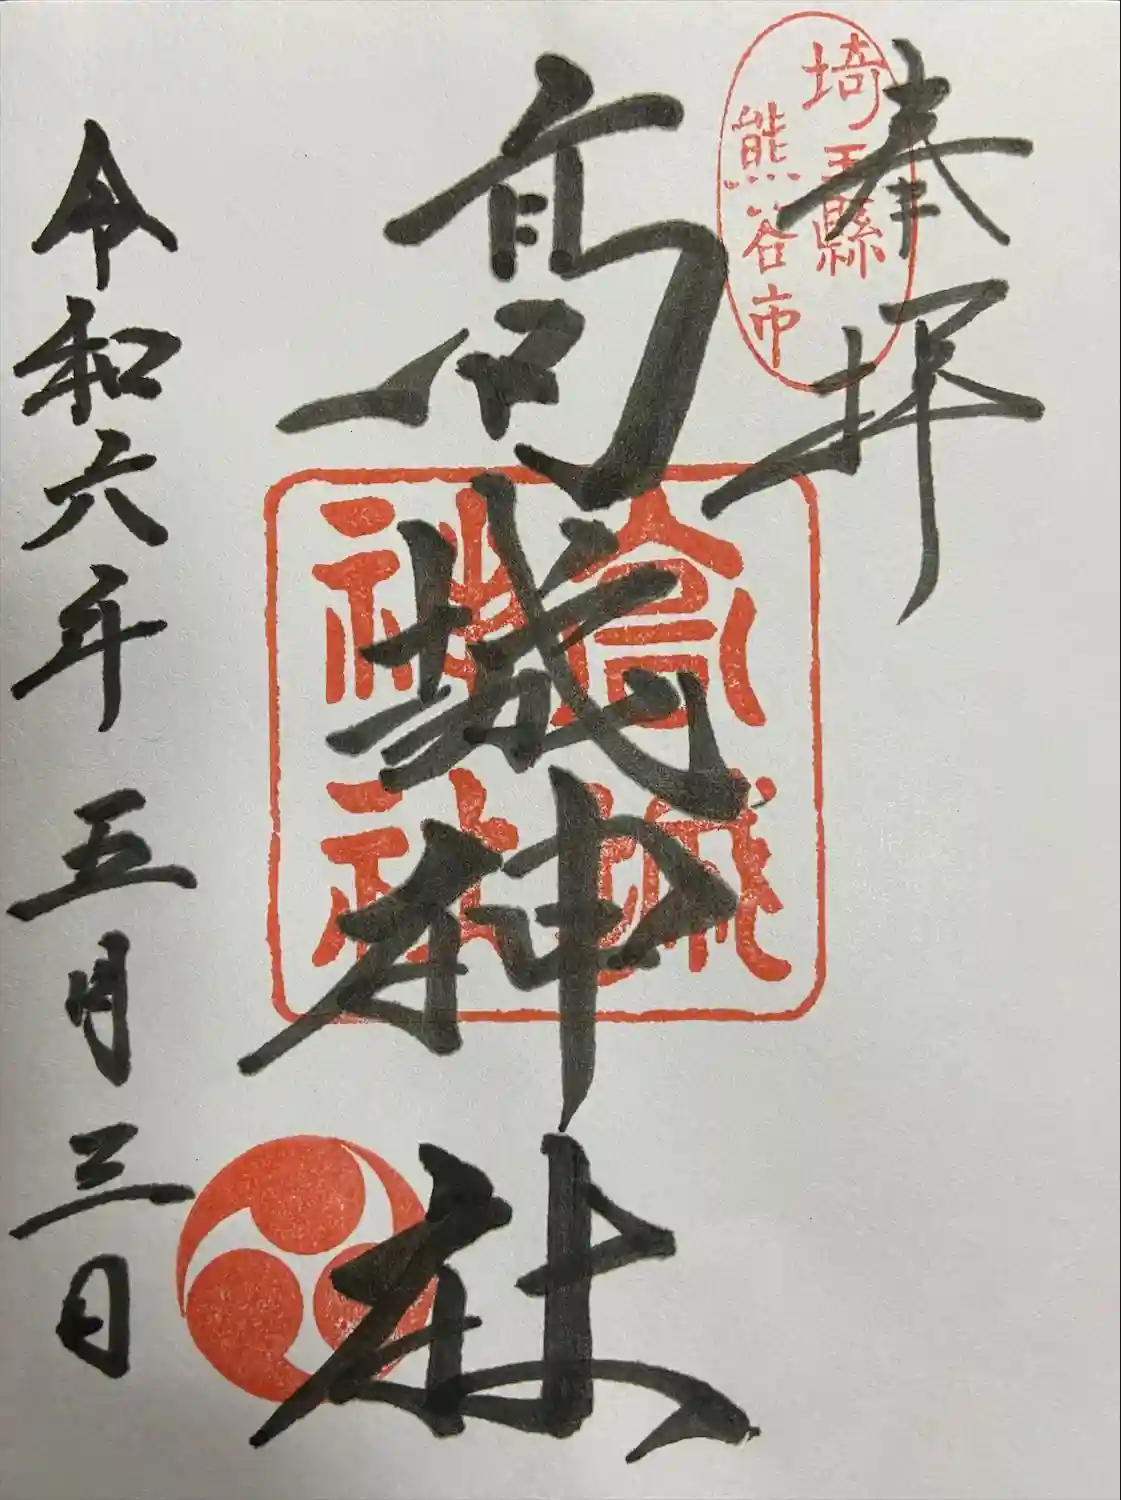 奉拝
埼玉縣
熊谷市
髙城神社
高城
神社
令和六年 五月三日